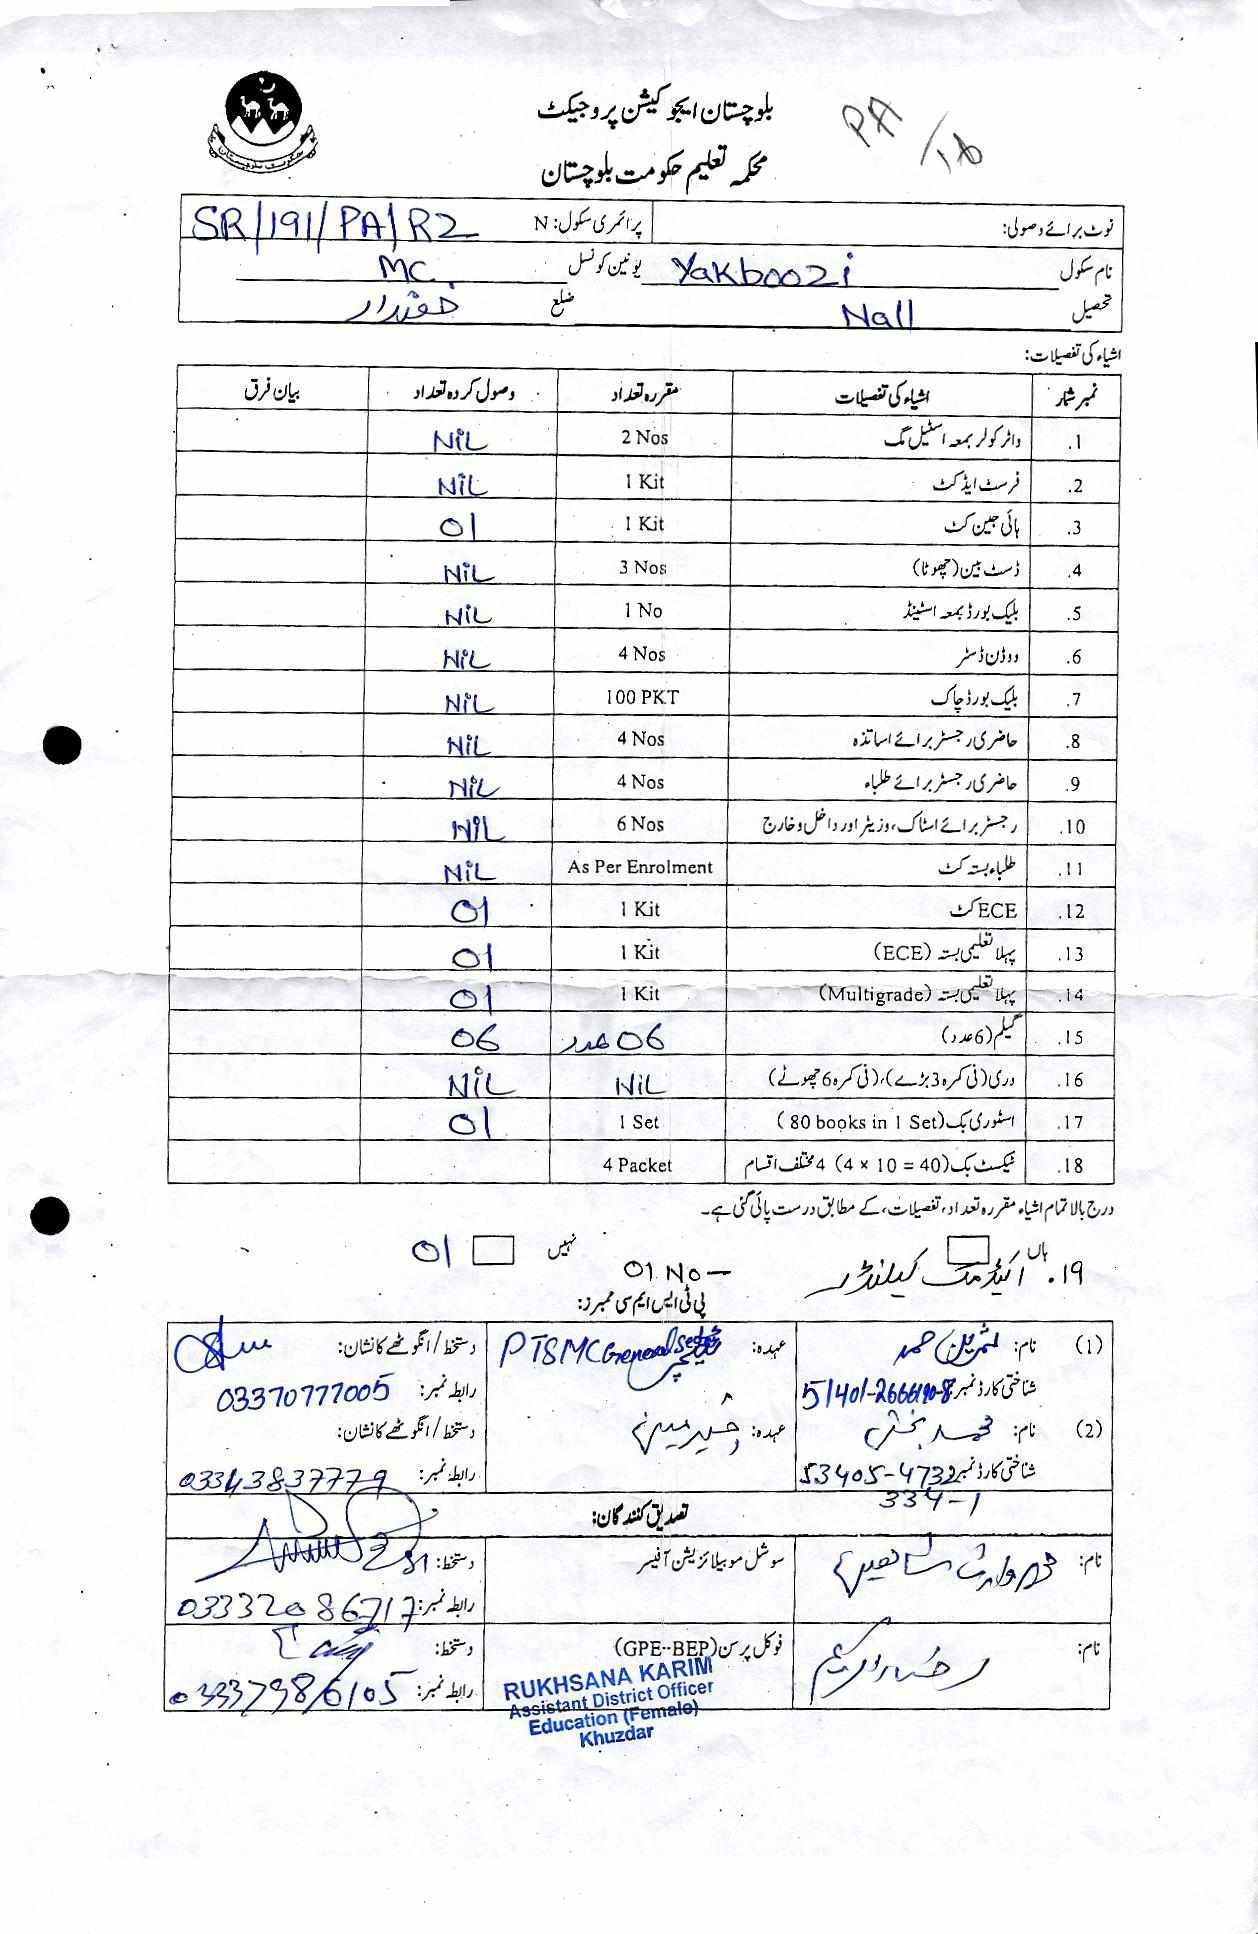 بلوچستان ایجوکیشن پروجیکٹ
محکمہ تعلیم حکومت بلوچستان
PA/16
نوٹ برائے وصولی: پرائمری سکول: N SR/191/PA/R2
نام سکول Yakboozi یونین کونسل MC
تحصیل Nall ضلع خضدار
اشیاء کی تفصیلات:
نمبر شمار اشیاء کی تفصیلات مقررہ تعداد وصول کردہ تعداد بیان فرق
1. واٹر کولر بمعہ اسٹیل مگ 2 Nos NiL
2. فرسٹ ایڈ کٹ 1 Kit NiL
3. ہائی جین کٹ 1 Kit 01
4. ڈسٹ بین (چھوٹا) 3 Nos NiL
5. بلیک بورڈ بمعہ اسٹینڈ 1 No NiL
6. ووڈن ڈسٹر 4 Nos NiL
7. بلیک بورڈ چاک 100 PKT NiL
8. حاضری رجسٹر برائے اساتذہ 4 Nos NiL
9. حاضری رجسٹر برائے طلباء 4 Nos NiL
10. رجسٹر برائے اسٹاک، وزیٹر اور داخل و خارج 6 Nos NiL
11. طلباء بستہ کٹ As Per Enrolment NiL
12. ECE کٹ 1 Kit 01
13. پہلا تعلیمی بستہ (ECE) 1 Kit 01
14. پہلا تعلیمی بستہ (Multigrade) 1 Kit 01
15. گیلم (6 عدد) 06 عدد 06
16. دری (فی کمرہ 3 بڑے)، (فی کمرہ 6 چھوٹے) NiL NiL
17. اسٹوری بک (80 books in 1 Set) 1 Set 01
18. ٹیکسٹ بک (4 × 10 = 40) 4 مختلف اقسام 4 Packet
درج بالا تمام اشیاء مقررہ تعداد، تفصیلات، کے مطابق درست پائی گئی ہے۔
ہاں نہیں
19. اکیڈمک کیلنڈر 01 No— 01
پی ٹی ایس ایم سی ممبرز:
(1) نام: عہدہ: PTSMC General دستخط/انگوٹھے کا نشان:
شناختی کارڈ نمبر 51401-2666190-8 رابطہ نمبر: 03370777005
(2) نام: محمد بخش عہدہ: چیئرمین دستخط/انگوٹھے کا نشان:
شناختی کارڈ نمبر 53405-4732334-1 رابطہ نمبر: 03343837779
تصدیق کنندگان:
نام: سوشل موبیلائزیشن آفیسر دستخط:
رابطہ نمبر: 03332086717
نام: رخسانہ کریم فوکل پرسن (GPE--BEP) دستخط:
رابطہ نمبر: 03337986105
RUKHSANA KARIM
Assistant District Officer
Education (Female)
Khuzdar